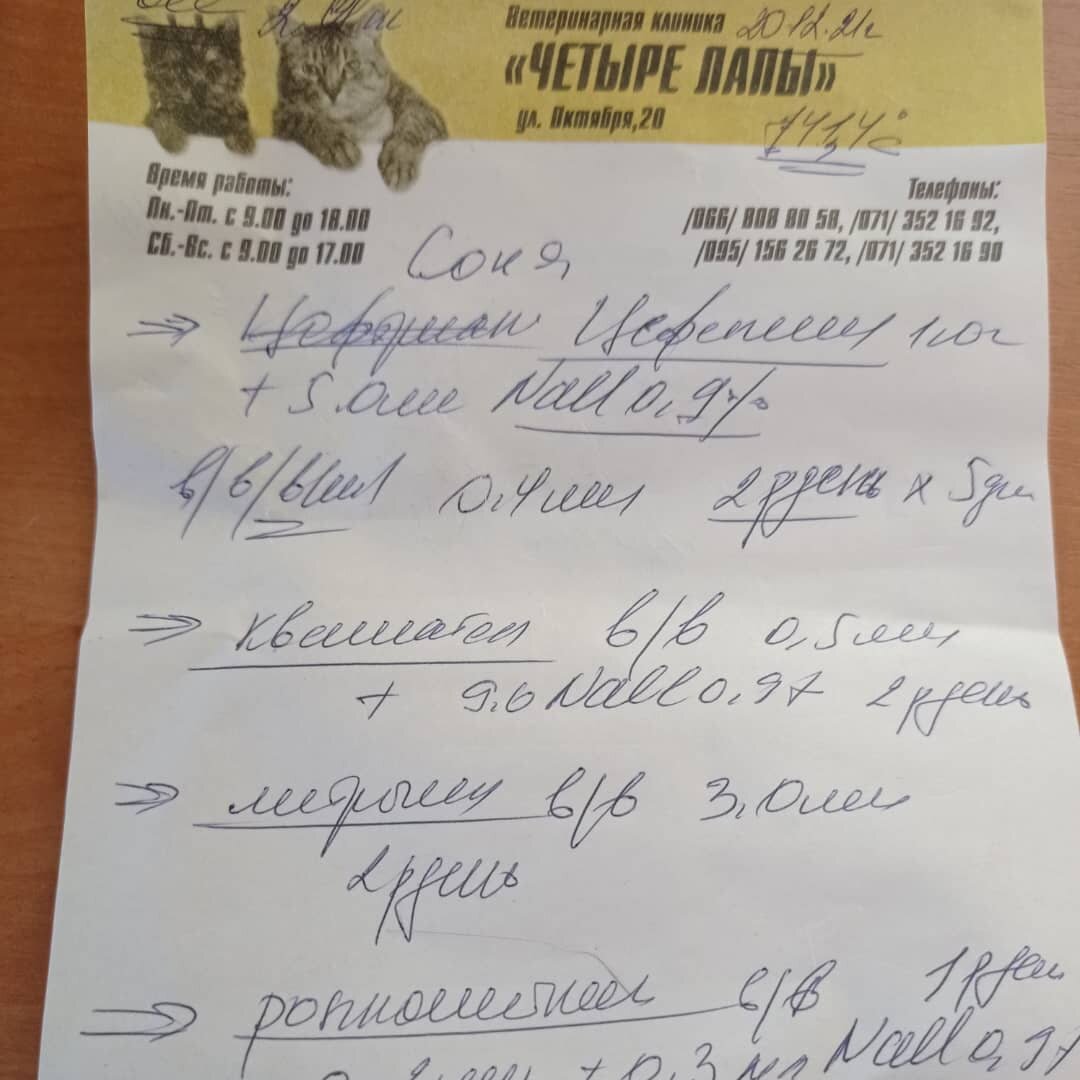 вес 2.4 кг
Ветеринарная клиника 20.12.21г
«ЧЕТЫРЕ ЛАПЫ»
ул. Октября,20
41,4°
Время работы:
Пн.-Пт. с 9.00 до 18.00
Сб.-Вс. с 9.00 до 17.00
Телефоны:
/066/ 808 80 58, /071/ 352 16 92,
/095/ 156 26 72, /071/ 352 16 90
Соня
⇒ Цефепим 1.0г
+ 5.0мл NaCl 0,9%
в/в/вит 0.4мл 2рдень х 5дн
⇒ квамател в/в 0,5мл
+ 9.0 NaCl 0,9% 2рдень
⇒ митрыин в/в 3,0мл
2рдень
⇒ ронколейкин в/в 1рден
+ 0,3 мл NaCl 0,9%